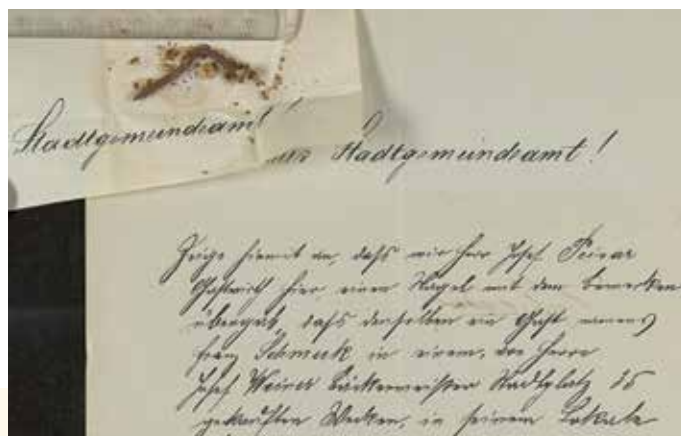 Stadtgemeindeamt!
Stadtgemeindeamt!
Zeige hiemit an, dass mir Herr Josef Peirar
Gastwirth hier, einen Nagel mit dem bemerken
übergab, dass denselben ein Gast namens
Franz Schmeck in einem, von Herrn
Josef Weirer Bäckermeister Stadtplatz 35
gekauften Wecken, in seinem Lokale